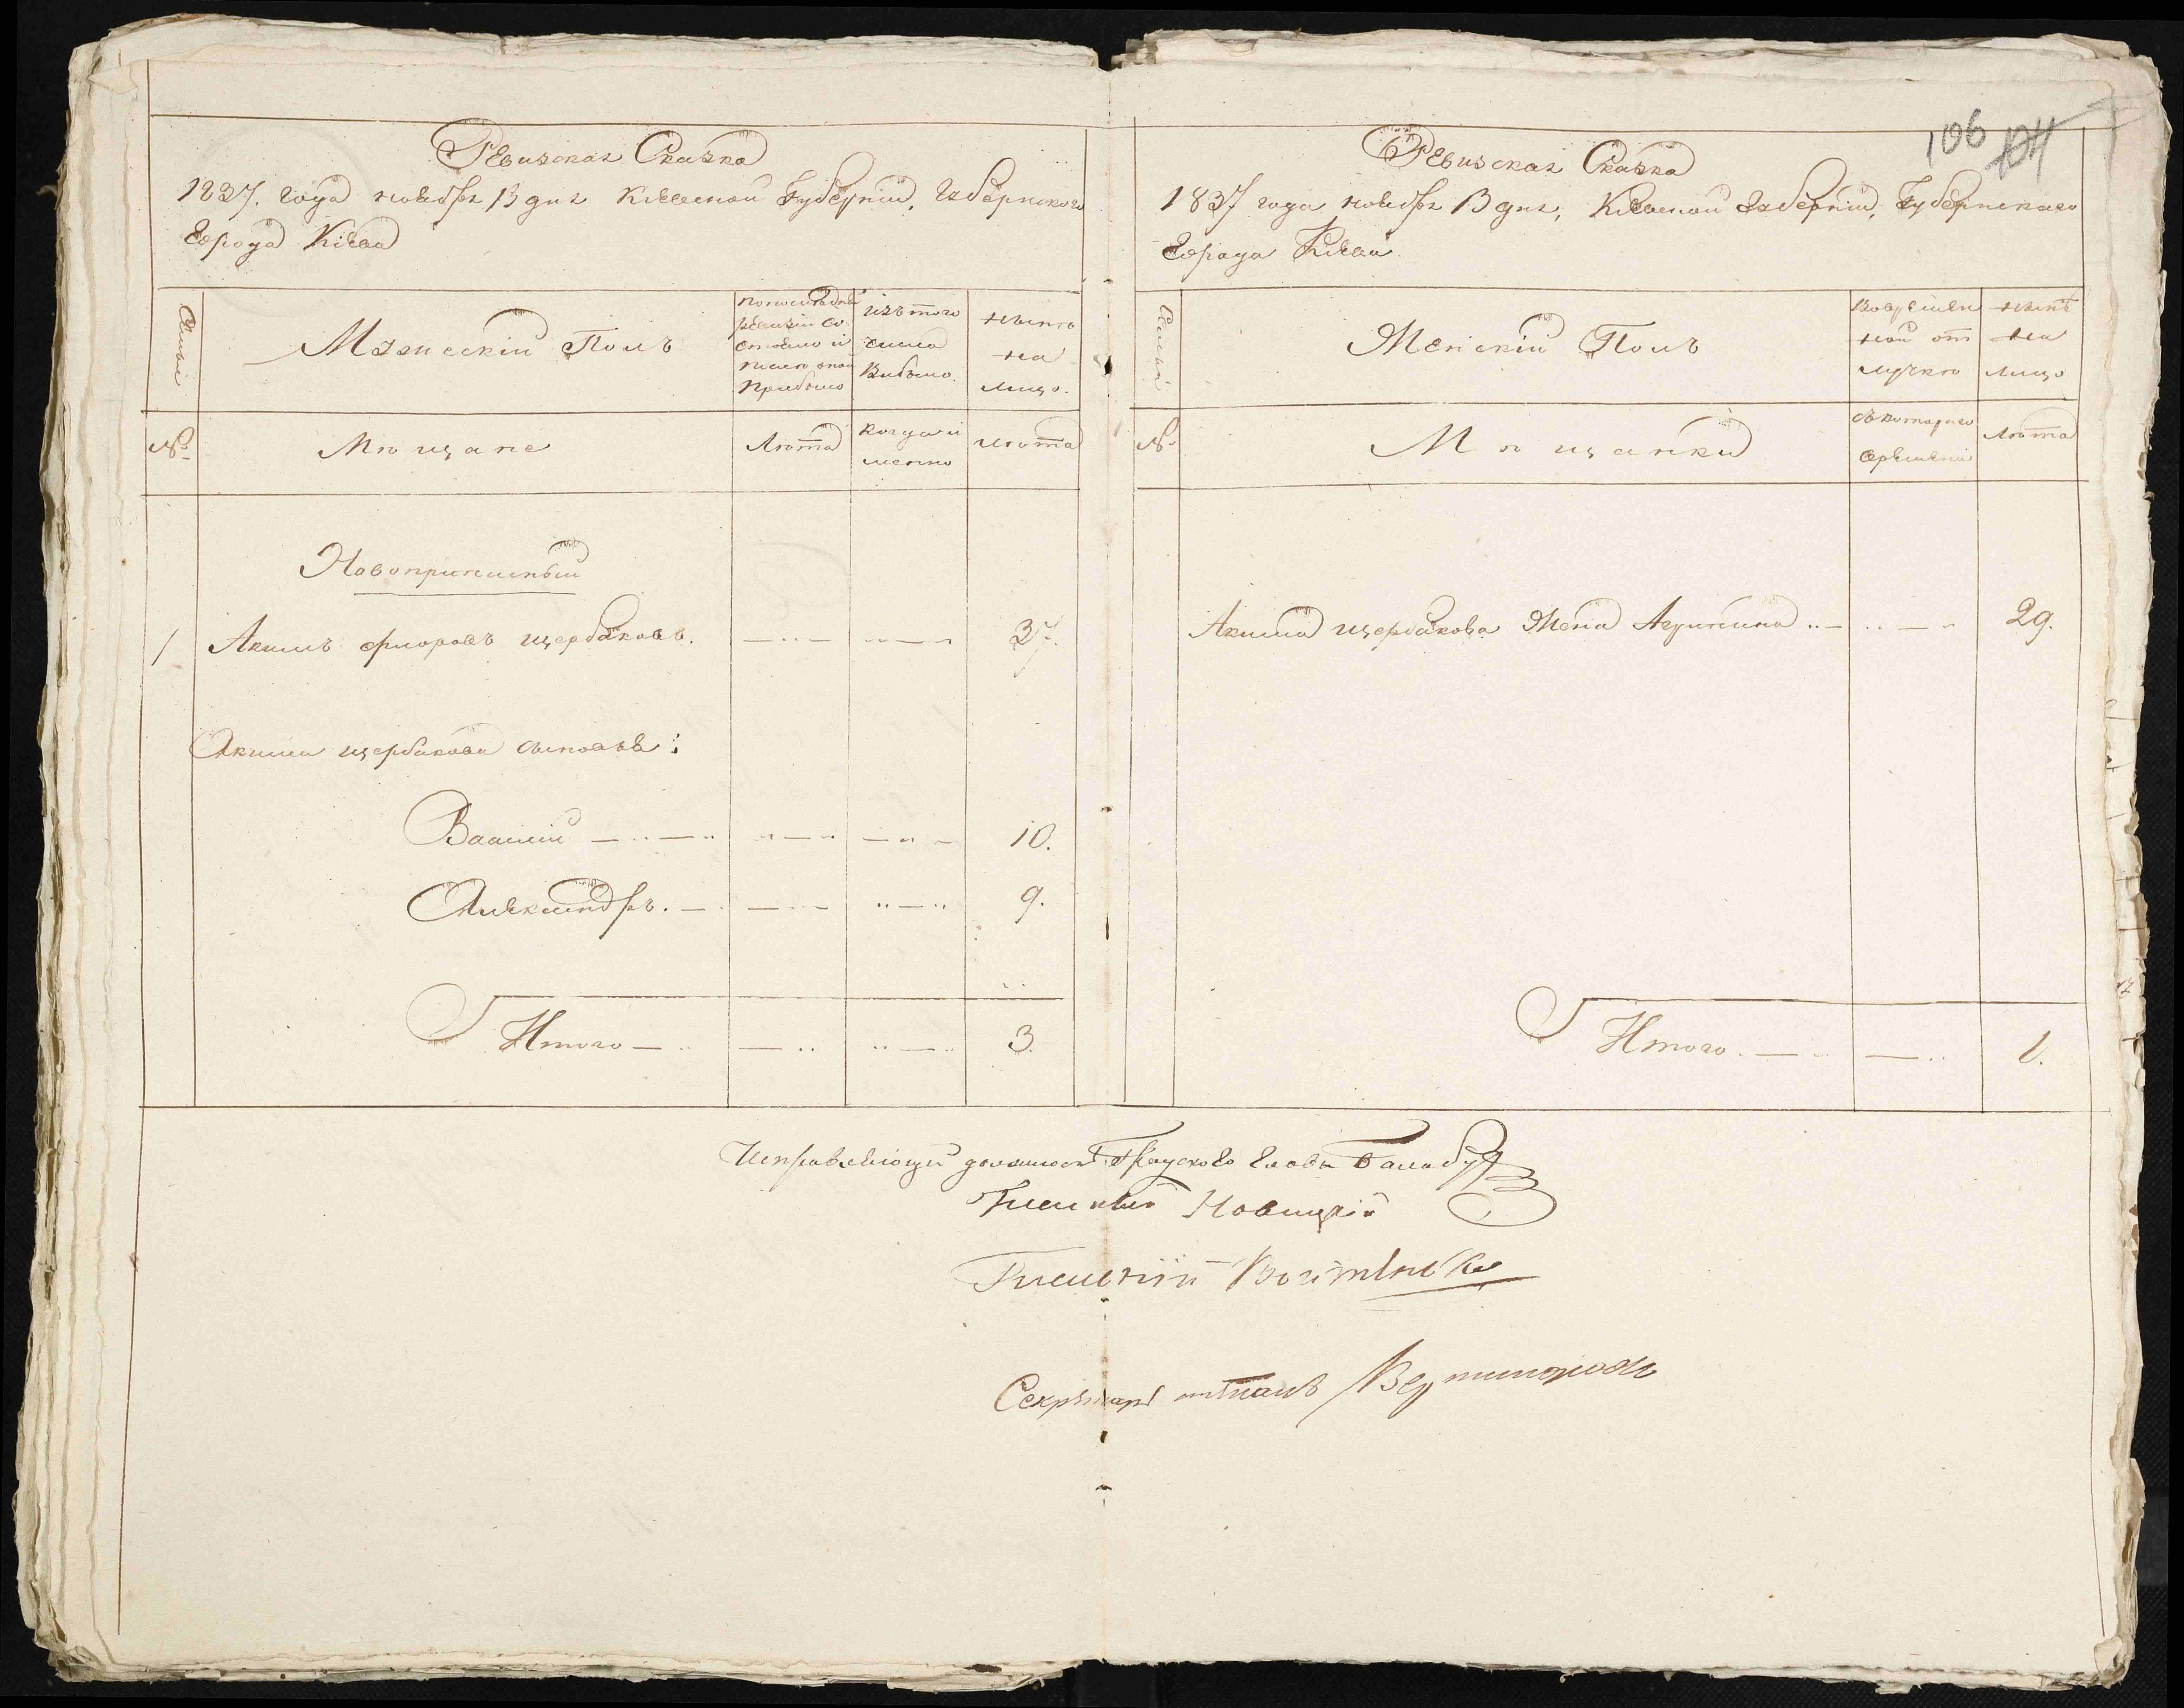 106 104
Ревизская Сказка
1837. года ноября 13 дня Кіевской Губерніи, Губернского
Города Кіева
Семьи
Мужескій Полъ
По последней
ревизіи со
стояло и
после оной
прибыло
Изъ того
числа
Выбыло.
Ныне
на
лицо.
№
Мѣщане
Лѣта
когда и
менно
Лѣта
Новопринятый
1 Акимъ Флоровъ Щербаковъ. 37.
Акима Щербакова сыновья:
Василій 10.
Александръ. 9.
Итого 3.
Ревизская Сказка
1837 года ноября 13 дня, Кіевской Губерніи, Губернскаго
Города Кіева
Семьи
Женскій Полъ
Во времен
ной от
лучке
Нынѣ
на
лицо
№
Мѣщанки
Съ котораго
времени
Лѣта
Акима Щербакова Жена Агрипина 29.
Итого. 1.
Исправляющій должность Градского Главы Балабуха
Гласный Новицкій
Гласный Войтенко
Секретарь